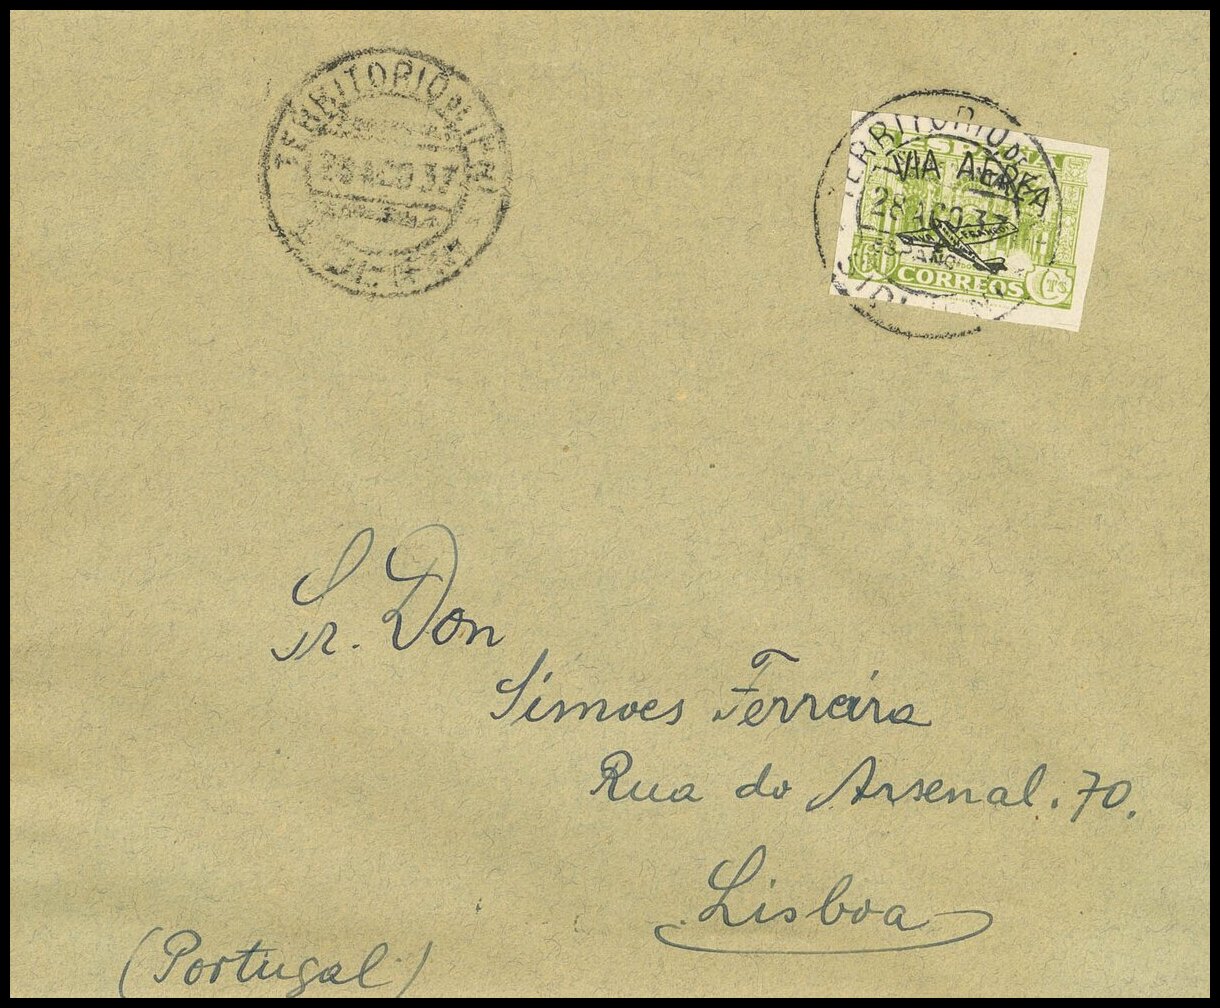 TERRITORIO DE IFNI
28 AGO 37
TERRITORIO DE
28 AGO 37
SIDI
ESPAÑA
VIA AEREA
CORREOS
CTS
Sr. Don
Simoes Ferreira
Rua do Arsenal. 70.
Lisboa
(Portugal)